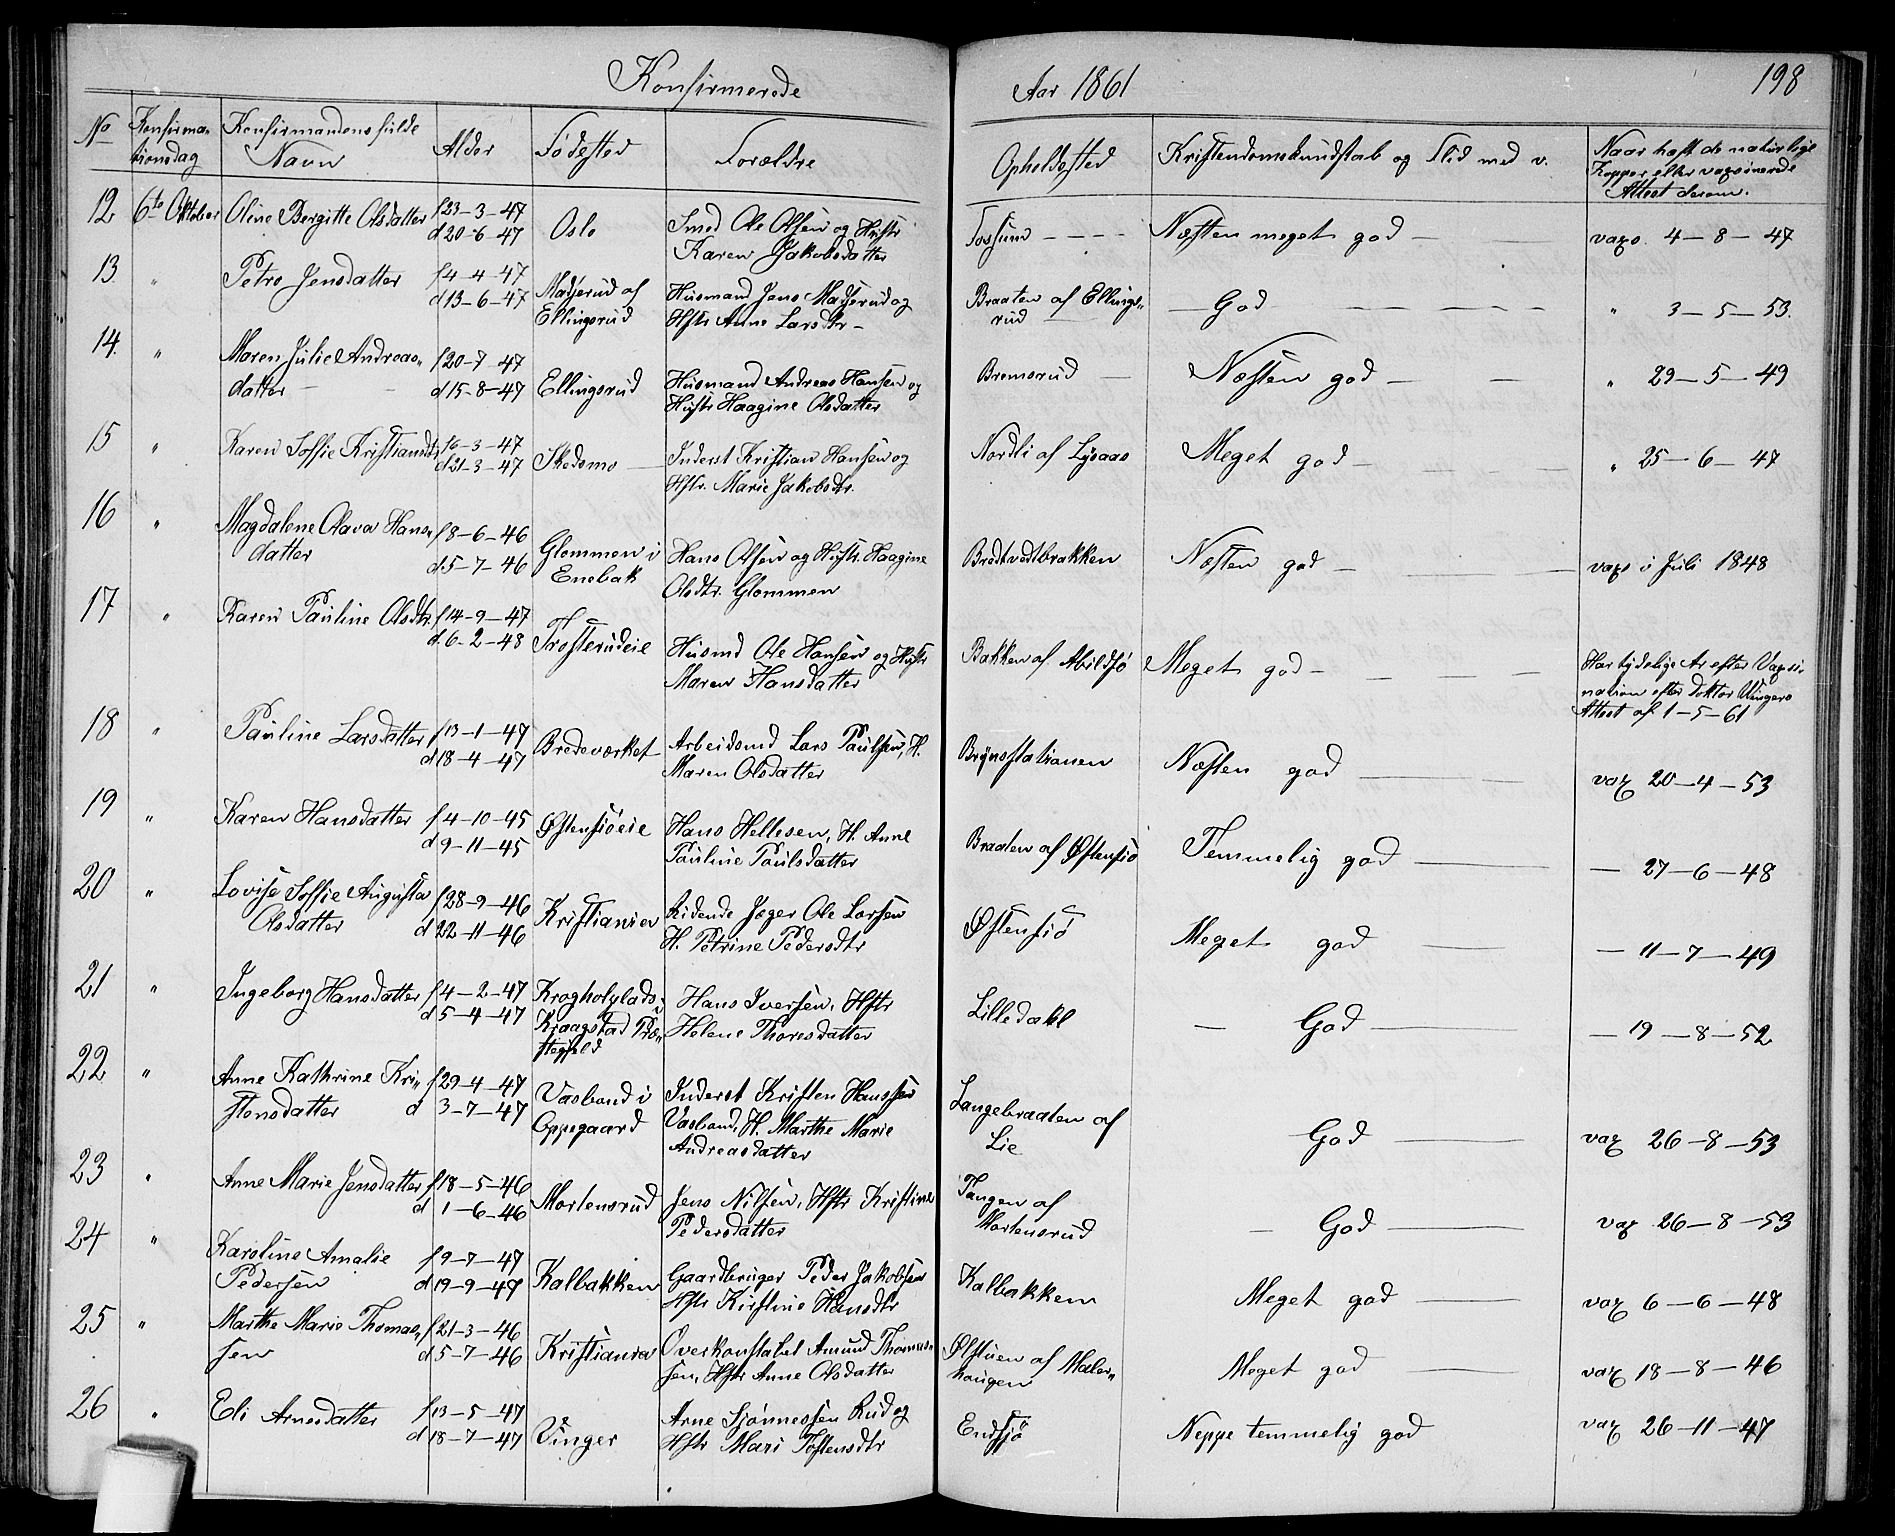 Konfirmerede Aar 1861 198
No Konfirma-tionsdag Konfirmandens fulde Navn Alder Fødested Forældre Opholdssted Kristendomskundskab og Flid med v. Naar haft de naturlige Kopper eller vaxsinerede Attest derom.
12 6te Oktober Oline Bergitte Olsdatter f 23-3-47 Oslo Smed Ole Olsen og Hustr Fossum Næsten meget god vaxs. 4-8-47
d 20-6-47 Karen Jakobsdatter
13. " Petro Jensdatter f 4-4-47 Madserud af Husmand Jens Madserud og Braaten af Ellings- God " 3-5-53.
d 13-6-47 Ellingsrud Hstr Anne Larsdtr rud
14. " Maren Julie Andreas- f 20-7-47 Ellingsrud Husmand Andreas Hansen og Bremsrud Næsten god " 29-5-49
datter d 15-8-47 Hustr Haagine Olsdatter
15 " Karen Soffie Kristiansdtr f 6-3-47 Skedsmo Inderst Kristian Hansen og Nordli af Lysaas Meget god " 25-6-47
d 21-3-47 Hstr. Marie Jakobsdtr.
16 " Magdalene Olava Hans- f 8-6-46 Glommen i Hans Olsen og Hustr. Haagine Bredtvedtbrakken Næsten god vaxs i Juli 1848
datter d 5-7-46 Enebak Olsdtr. Glommen
17 " Karen Pauline Olsdtr. f 14-9-47 Trosterudeie Husmd Ole Hansen og Hustr Bakken af Abildsø Meget god Har tydelige Ar efter Vaxsi-
d 6-2-48 Maren Hansdatter nation efter Doktor Ungers
Attest af 1-5-61
18 " Pauline Larsdatter f 13-1-47 Bredeværket Arbeidsmd Lars Paulsen, H. Brynsstationen Næsten god vax 20-4-53
d 18-4-47 Maren Olsdatter
19 " Karen Hansdatter f 4-10-45 Østensiøeie Hans Hellesen, H. Anne Braaten af Østensiø Temmelig god — 27-6-48
d 9-11-45 Pauline Paulsdatter
20 " Lovise Soffie Augusta f 28-9-46 Kristiania Ridende Jæger Ole Larsen Østensiø Meget god — 11-7-49
Olsdatter d 22-11-46 H. Petrine Pedersdtr
21 " Ingeborg Hansdatter f 4-2-47 Hans Iversen, Hstr Lilledahl God — 19-8-52
d 5-4-47 Kraagstad Præ- Helene Thoresdatter
stegjeld
22 " Anne Kathrine Kri- f 29-4-47 Vasbond i Inderst Kristen Hanssen Langebraaten af God vax 26-8-53
stensdatter d 3-7-47 Oppegaard Vasbond, H. Marthe Marie Lie
Andreasdatter
23 " Anne Marie Jensdatter f 18-5-46 Mortensrud Jens Nilsen, Hstr Kristine Tangen af God vax 26-8-53
d 1-6-46 Pedersdatter Mortensrud
24 " Karoline Amalie f 9-7-47 Kalbakken Gaardbruger Peder Jakobsen Kalbakken Meget god vax 6-6-48
Pedersen d 19-9-47 Hstr Kirstine Hansdtr
25 " Marthe Marie Thomas- f 21-3-46 Kristiania Overkonstabel Amund Thomas- Østuen af Maler- Meget god vax 18-8-46
sen d 5-7-46 sen, Hstr Anne Olsdatter haugen
26 " Eli Arnesdatter f 13-5-47 Vinger Arne Sjønnessen Rud og Endsjø Neppe temmelig god vax 26-11-47
d 18-7-47 Hstr Mari Tostensdtr